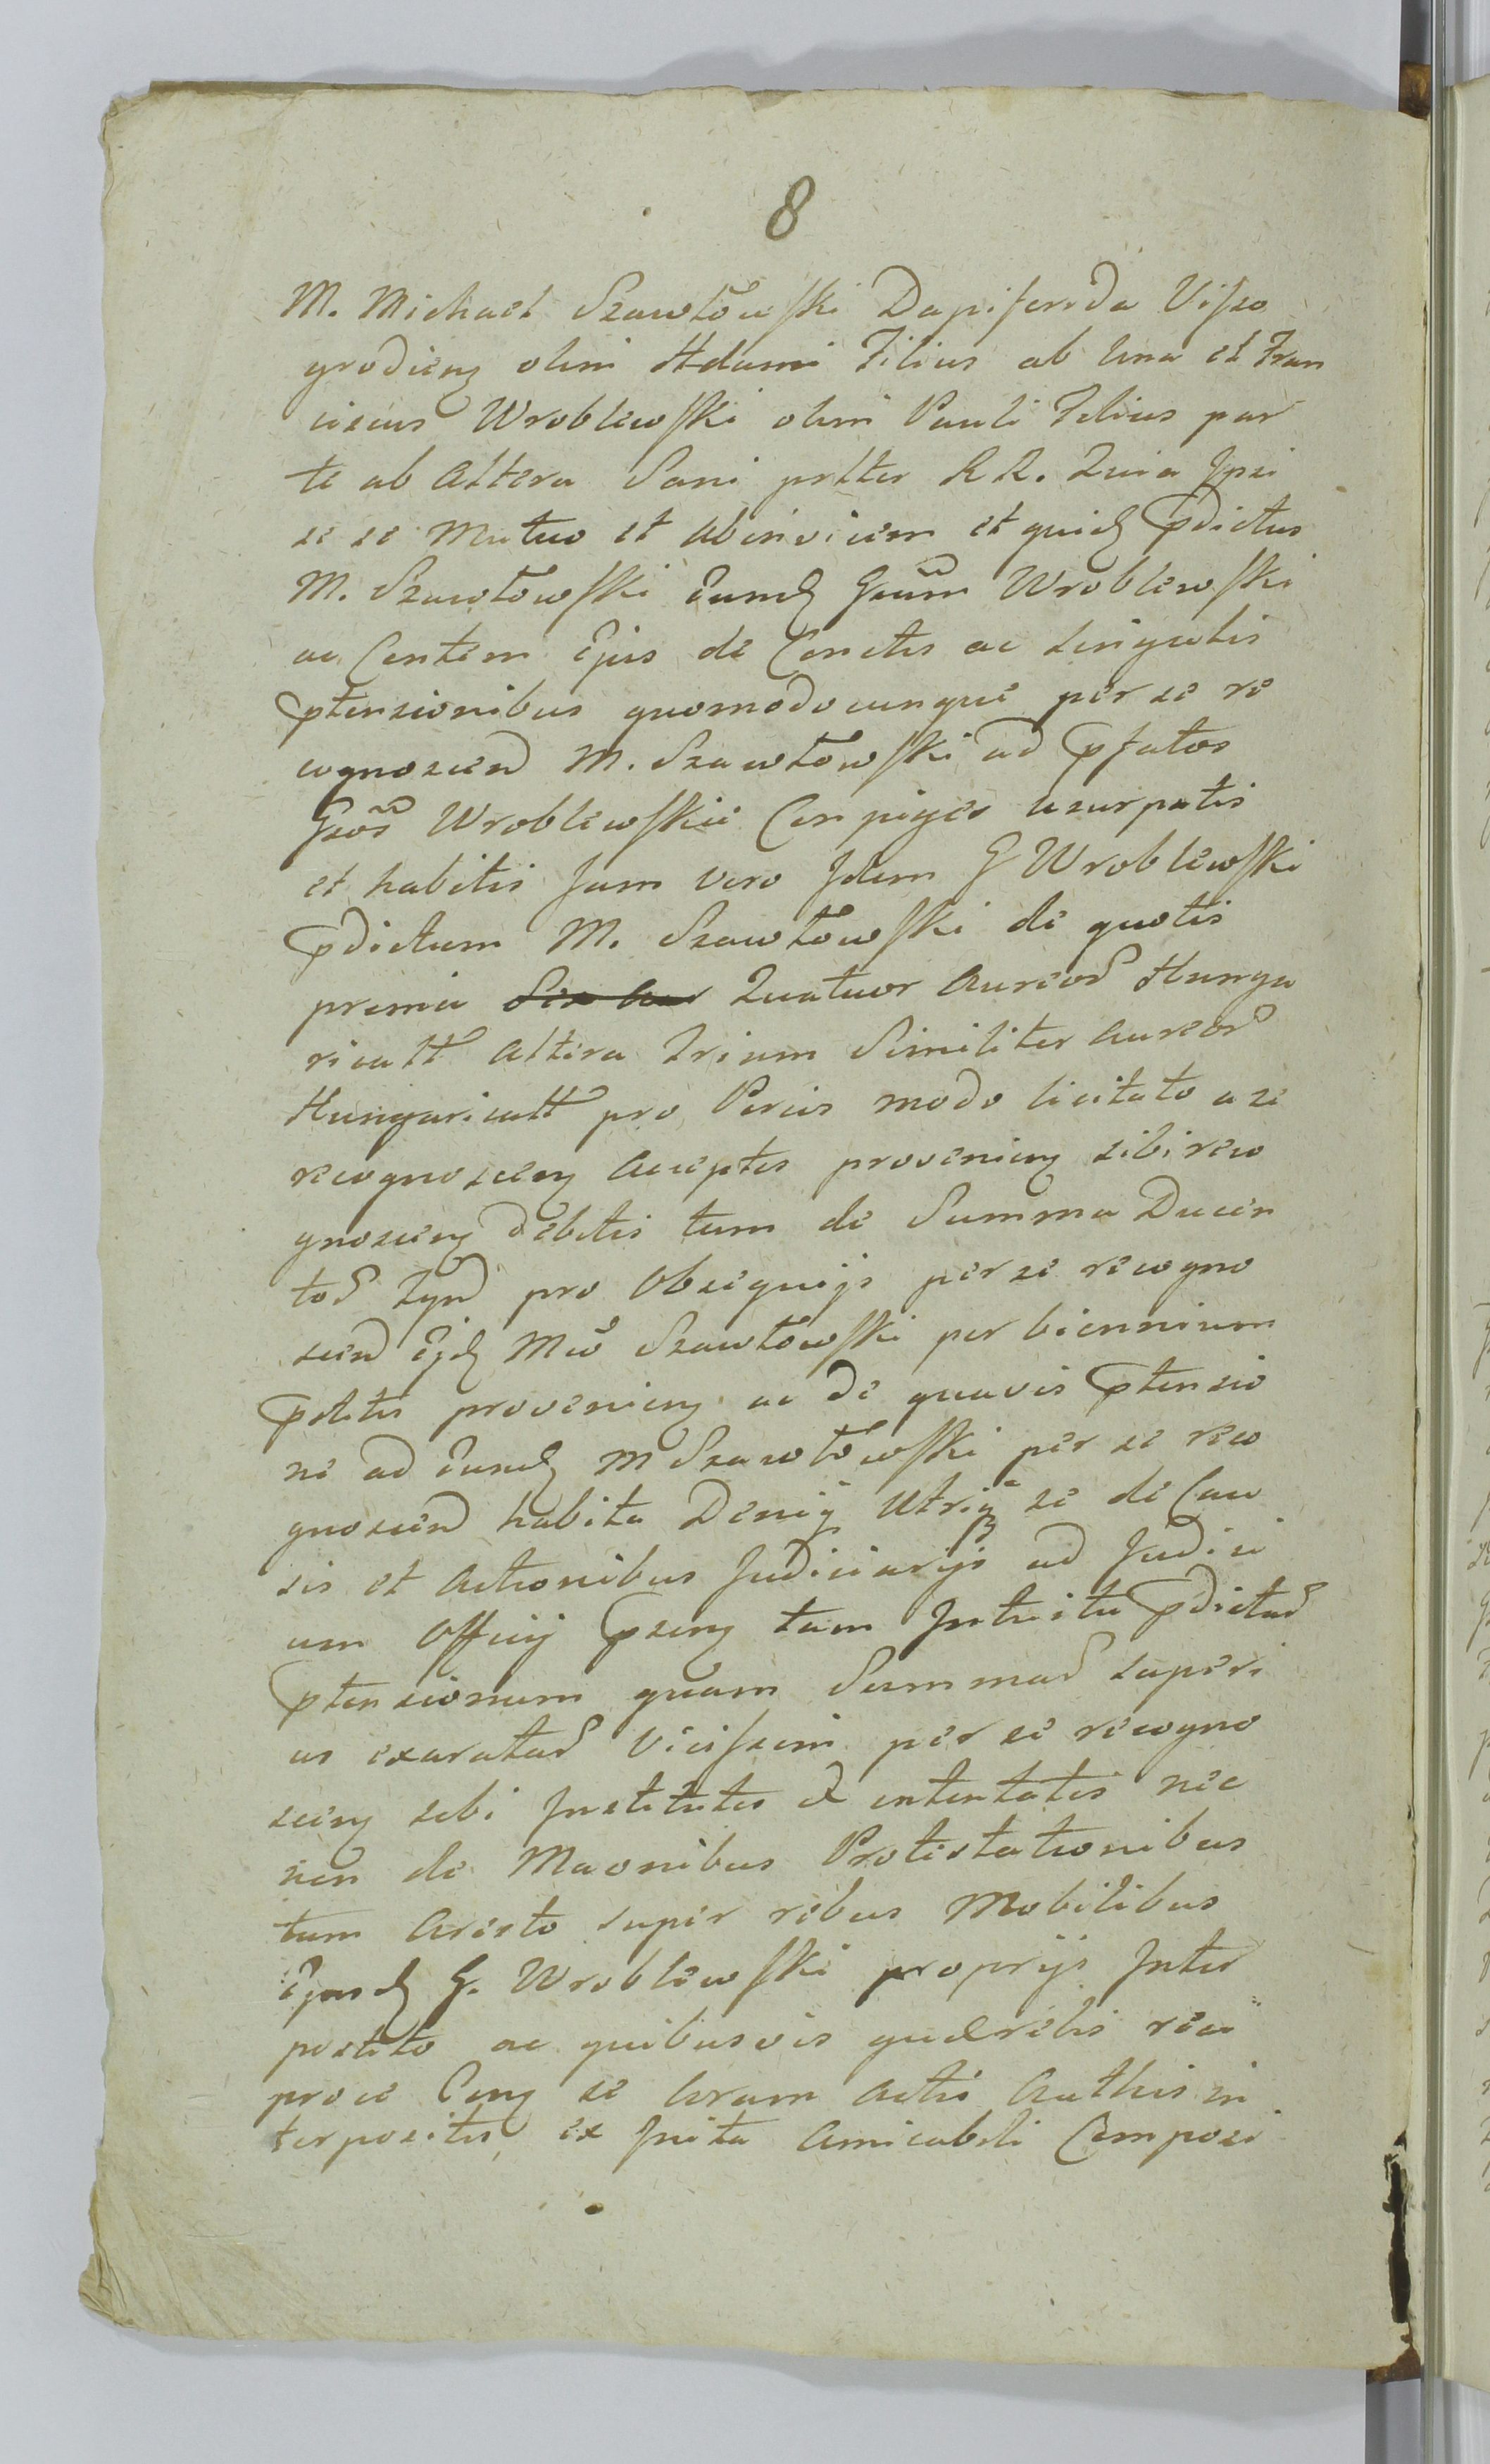 8
M. Michael Szawłowski Dapiferida Viszo
grodieng olim Adami Filius ab una et Fran
ciscus Wroblewski olim Pauli Filius par
te ab altera Sani prtter RR. Quia Ipsi
se se mutuo et abinvicem et quid pdictus
M. Szawłowski Eund Gnum Wroblewski
ac Contem Ejus de Conctis ac singulis
ptensionibus quomodocunque per se re
cognoscend M. Szawłowski ad pfatos
Gnos Wroblewskii Conjuges usurpatis
et habitis Jam vero Idem G Wroblewski
pdictum M. Szawłowski de quotis
prima Quatuor Aureor Hunga
ricatt altera Trium Similiter Aureor
Hungaricatt pro Porcis modo licitato a se
recognosceng acceptis provenieng sibi reco
gnosceng debitis tum de Summa Ducen
tor Zynd pro Obsequijs per se recogno
scend Ejd Mco Szawłowski per biennium
pstitis provenieng ac de quavis ptensio
ne ad Eund M Szawłowski per se reco
gnoscend habita Deniq Utriq se de Cau
sis et Actionibus Judiciarijs ad Judici
um Officij pseng tam Intuitu pdictar
ptensionum quam Summar superi
us exaratar vicissim per se recogno
sceng sibi Institutis & intentatis nec
non de Maonibus Protestationibus
tum Aresto super rebus Mobilibus
Ejusd G. Wroblewski proprijs Inter
posito ac quibusvis quærelis reci
proce Cong se coram Actis Authis in
terpositis, ex Inita Amicabili Composi